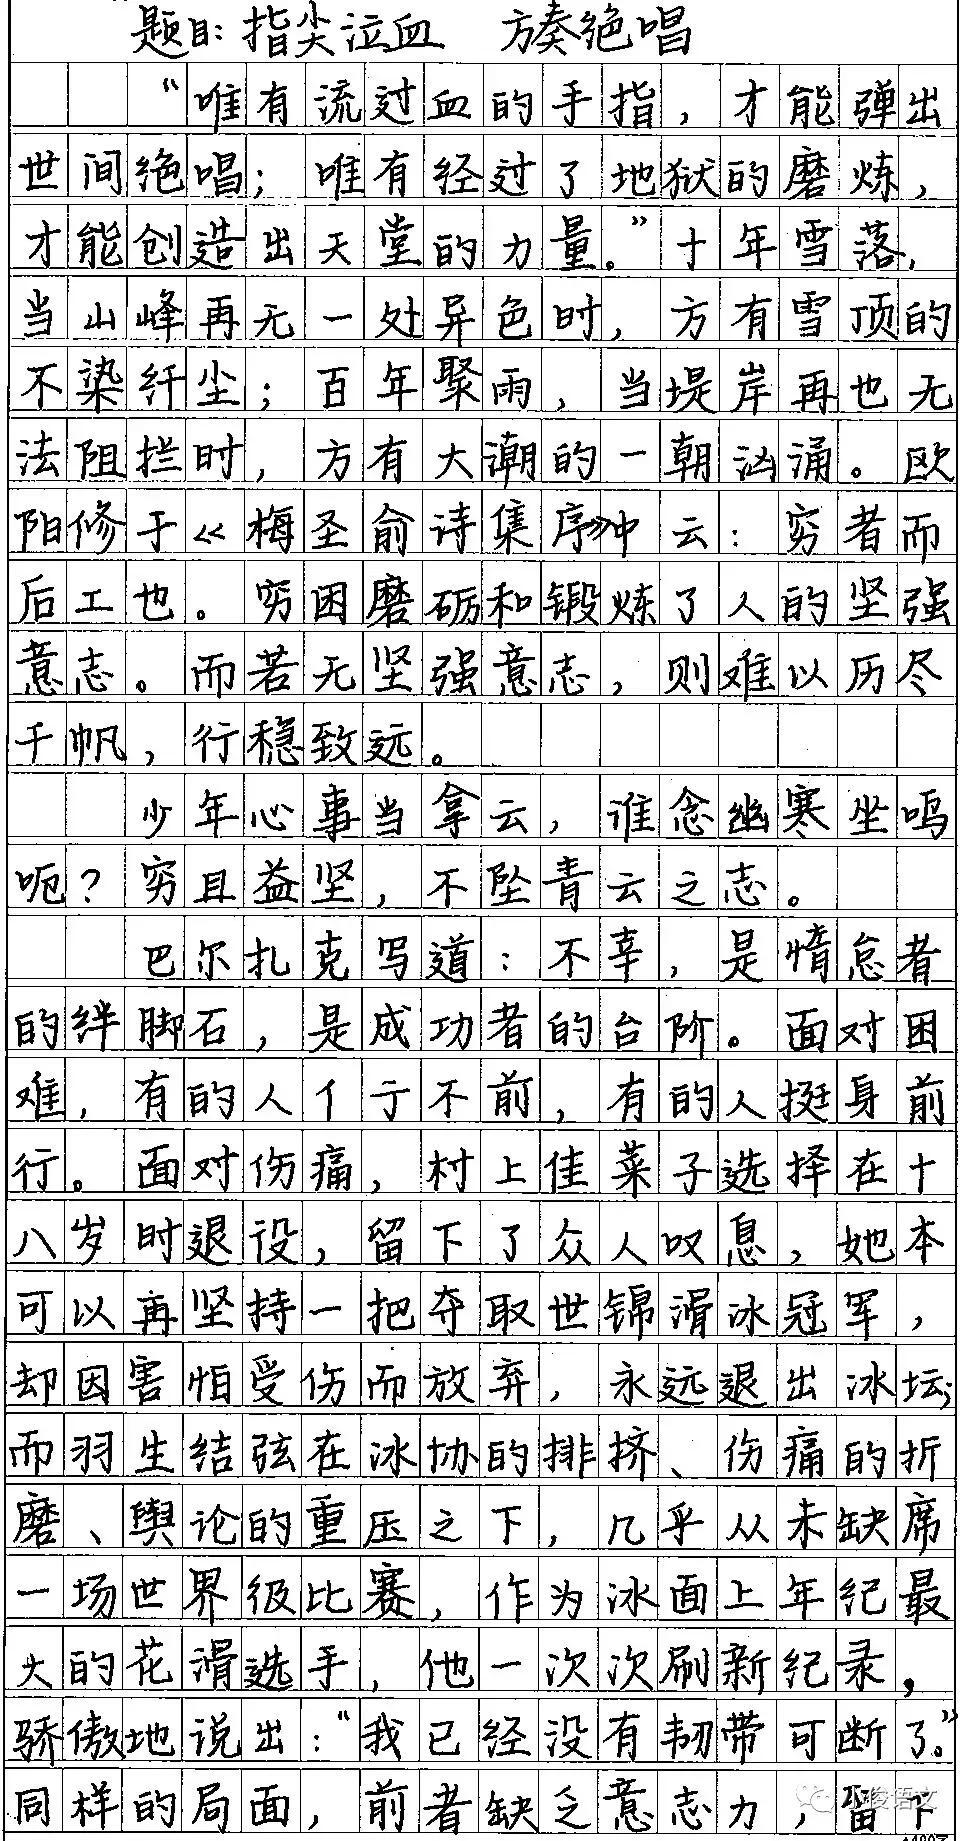 题目:指尖泣血 方奏绝唱
“唯有流过血的手指，才能弹出
世间绝唱；唯有经过了地狱的磨炼，
才能创造出天堂的力量。”十年雪落，
当山峰再无一处异色时，方有雪顶的
不染纤尘；百年聚雨，当堤岸再也无
法阻拦时，方有大潮的一朝汹涌。欧
阳修于《梅圣俞诗集序》中云：穷者而
后工也。穷困磨砺和锻炼了人的坚强
意志。而若无坚强意志，则难以历尽
千帆，行稳致远。
少年心事当拿云，谁念幽寒坐鸣
呃？穷且益坚，不坠青云之志。
巴尔扎克写道：不幸，是惰怠者
的绊脚石，是成功者的台阶。面对困
难，有的人彳亍不前，有的人挺身前
行。面对伤痛，村上佳菜子选择在十
八岁时退役，留下了众人叹息，她本
可以再坚持一把夺取世锦滑冰冠军，
却因害怕受伤而放弃，永远退出冰坛；
而羽生结弦在冰协的排挤、伤痛的折
磨、舆论的重压之下，几乎从未缺席
一场世界级比赛，作为冰面上年纪最
大的花滑选手，他一次次刷新纪录，
骄傲地说出：“我已经没有韧带可断了。”
同样的局面，前者缺乏意志力，留下
小梭语文